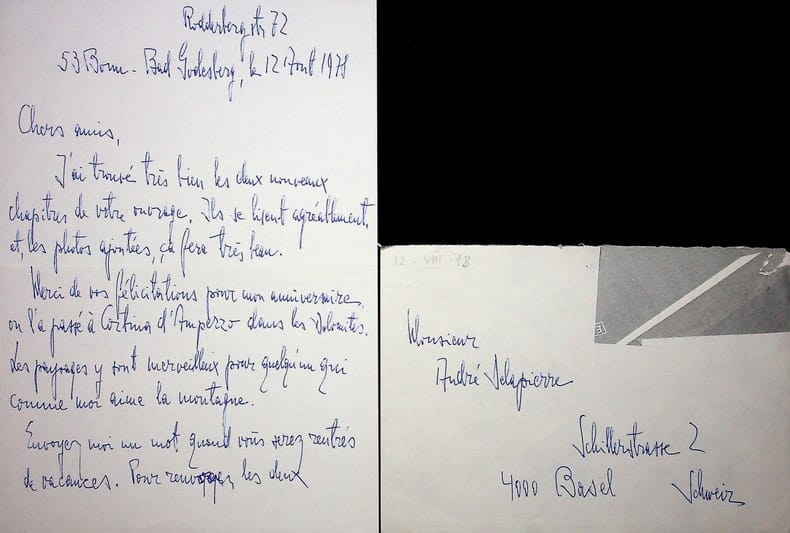 Rodderbergstr 72
53 Bonn - Bad Godesberg, le 12 Août 1978
Chers amis,
J'ai trouvé très bien les deux nouveaux
chapitres de votre ouvrage. Ils se lisent agréablement,
et, les photos ajoutées, ça fera très beau.
Merci de vos félicitations pour mon anniversaire,
on l'a passé à Cortina d'Ampezzo dans les Dolomites.
Les paysages y sont merveilleux pour quelqu'un qui
comme moi aime la montagne.
Envoyez moi un mot quand vous serez rentrés
de vacances. Pour renvoyer les deux
12. VIII. 78
Monsieur
André Delapierre
Schillerstrasse 2
4000 Basel Schweiz